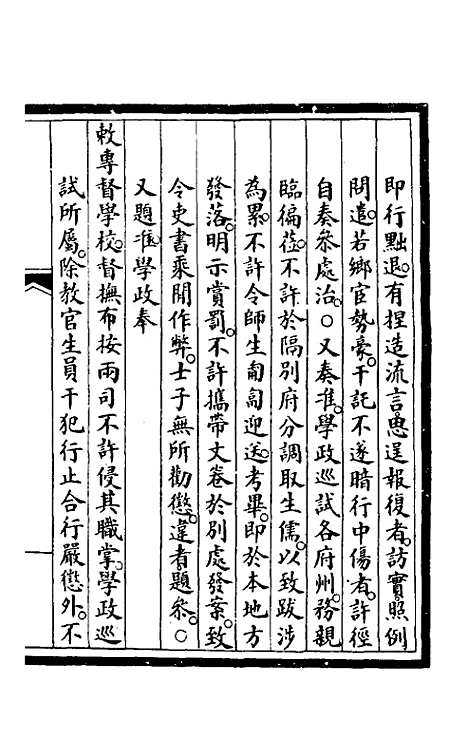 即行點退。有捏造流言思逞報復者。訪實照例
問遣。若鄉宦勢豪。干託不遂暗行中傷者。許徑
自奏叅處治。○又奏准。學政巡試各府州。務親
臨徧蒞。不許於隔別府分調取生儒。以致跋涉
為累。不許令師生匍匐迎送。考畢。即於本地方
發落。明示賞罰。不許攜帶文卷於別處發案。致
令吏書乘閒作弊。士子無所勸懲。違者題叅。○
又題准。學政奉
敕專督學校。督撫布按兩司不許侵其職掌。學政巡
試所屬。除教官生員干犯行止合行嚴懲外。不